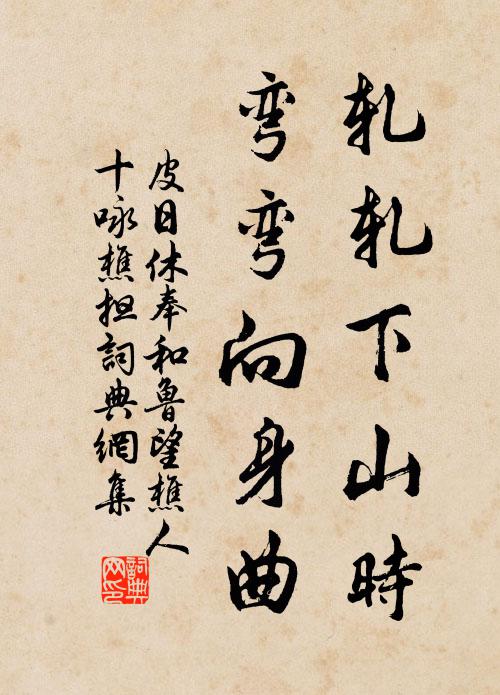 轧轧下山時
弯弯向身曲
皮日休奉和魯望樵人
十咏樵担詞典網集
詞典网印